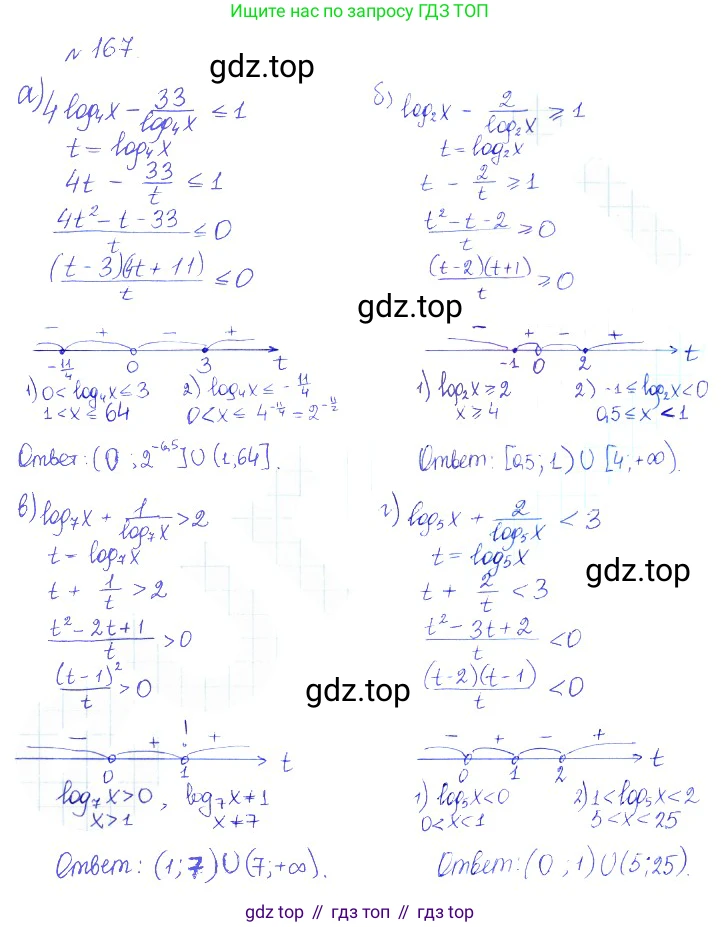 Ищите нас по запросу ГДЗ ТОП
№ 167.
gdz.top
а) 4 log₄x − 33/log₄x ≤ 1
t = log₄x
4t − 33/t ≤ 1
(4t² − t − 33)/t ≤ 0
(t − 3)(4t + 11)/t ≤ 0
− + − +
−11/4 0 3 t
1) 0 < log₄x ≤ 3 2) log₄x ≤ −11/4
1 < x ≤ 64 0 < x ≤ 4^(−11/4) = 2^(−11/2)
Ответ: (0 ; 2^(−5,5)] ∪ (1, 64].
б) log₂x − 2/log₂x ≥ 1
t = log₂x
t − 2/t ≥ 1
(t² − t − 2)/t ≥ 0
(t−2)(t+1)/t ≥ 0
gdz.top
− + − +
−1 0 2 t
1) log₂x ≥ 2 2) −1 ≤ log₂x < 0
x ≥ 4 0,5 ≤ x < 1
Ответ: [0,5; 1) ∪ [4; +∞).
в) log₇x + 1/log₇x > 2
t = log₇x
t + 1/t > 2
(t² − 2t + 1)/t > 0
(t−1)²/t > 0
gdz.top
− + ! +
0 1 t
log₇x > 0 , log₇x ≠ 1
x > 1 x ≠ 7
Ответ: (1; 7) ∪ (7; +∞).
г) log₅x + 2/log₅x < 3
t = log₅x
gdz.top
t + 2/t < 3
(t² − 3t + 2)/t < 0
(t−2)(t−1)/t < 0
− + − +
0 1 2 t
1) log₅x < 0 2) 1 < log₅x < 2
0 < x < 1 5 < x < 25
Ответ: (0 ; 1) ∪ (5; 25).
gdz top // гдз топ // gdz top